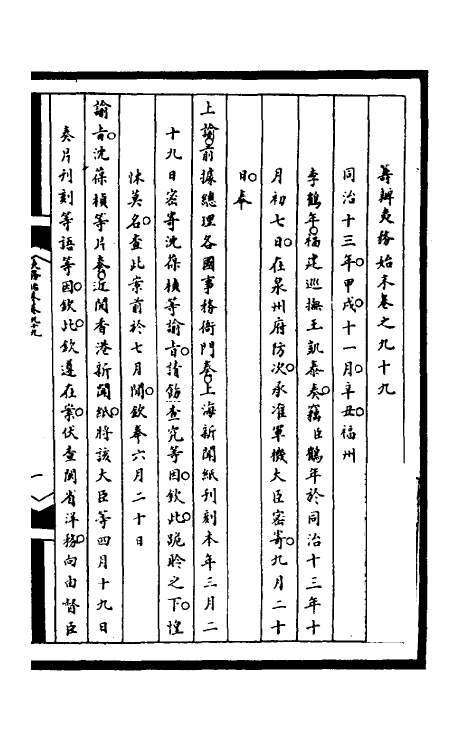 籌辦夷務始末卷之九十九
同治十三年。甲戌。十一月。辛丑。福州
李鶴年。福建巡撫王凱泰奏。竊臣鶴年於同治十三年十
月初七日。在泉州府防次。承准軍機大臣密寄。九月二十
日。奉
上諭。前據總理各國事務衙門奏。上海新聞紙刊刻本年三月二
十九日密寄沈葆楨等諭旨。請飭查究等因。欽此。跪聆之下。惶
悚莫名。查此案前於七月間。欽奉六月二十日
諭旨。沈葆楨等片奏。近閱香港新聞紙。將該大臣等四月十九日
奏片刊刻等語等因。欽此。欽遵在案。伏查閩省洋務。向由督臣
夷務始末卷九十九
一